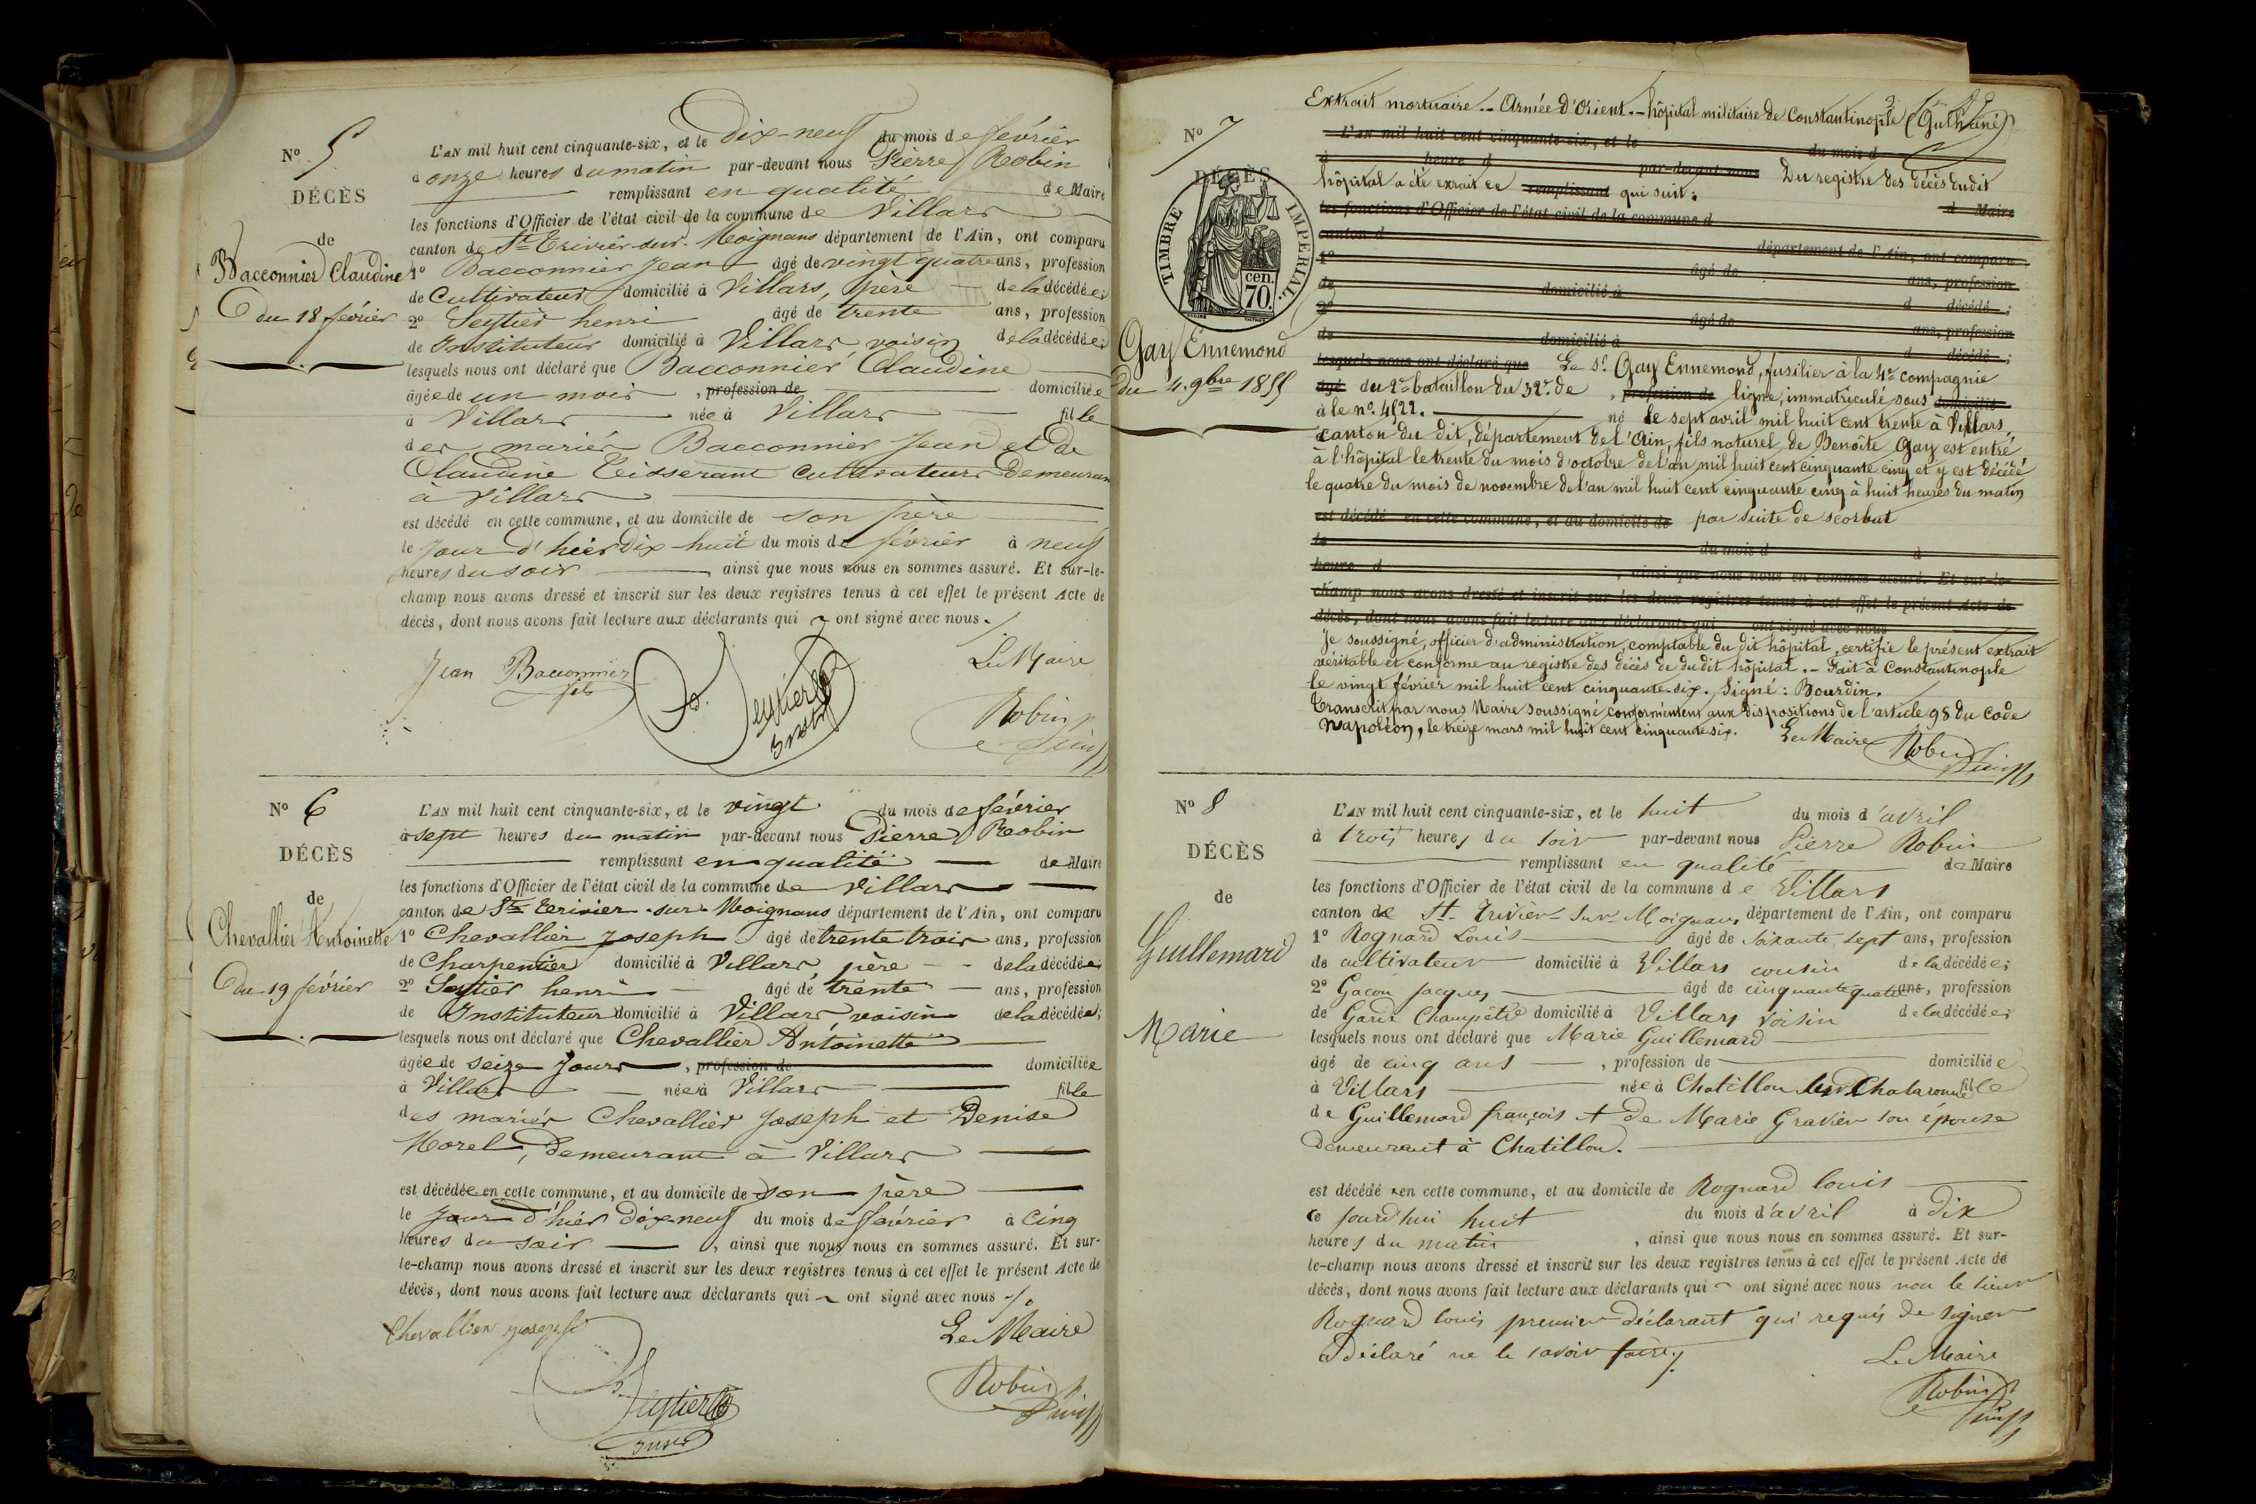 No 5
DÉCÈS
de
Bacconnier Claudine
du 18 février
L'AN mil huit cent cinquante-six, et le dix-neuf du mois de février
à onze heures du matin par-devant nous Pierre Robin
remplissant en qualité de Maire
les fonctions d'Officier de l'état civil de la commune de Villars
canton de St Trivier-sur-Moignans département de l'Ain, ont comparu
1o Bacconnier Jean âgé de vingt quatre ans, profession
de Cultivateur domicilié à Villars, père de la décédée;
2o Seytier henri âgé de trente ans, profession
de Instituteur domicilié à Villars voisin de la décédée;
lesquels nous ont déclaré que Bacconnier Claudine
âgée de un mois, profession de domiciliée
à Villars née à Villars fille
des mariés Bacconnier Jean et de
Claudine Tisserant cultivateurs demeurant
à Villars
est décédé en cette commune, et au domicile de son père
le jour d'hier dix huit du mois de février à neuf
heures du soir, ainsi que nous nous en sommes assuré. Et sur-le-
champ nous avons dressé et inscrit sur les deux registres tenus à cet effet le présent Acte de
décès, dont nous avons fait lecture aux déclarants qui ont signé avec nous.
Jean Bacconnier
fils
Seytier
Le Maire
Robin
No 6
DÉCÈS
de
Chevallier Antoinette
du 19 février
L'AN mil huit cent cinquante-six, et le vingt du mois de février
à sept heures du matin par-devant nous Pierre Robin
remplissant en qualité de Maire
les fonctions d'Officier de l'état civil de la commune de Villars
canton de St Trivier-sur-Moignans département de l'Ain, ont comparu
1o Chevallier Joseph âgé de trente trois ans, profession
de Charpentier domicilié à Villars père de la décédée;
2o Seytier henri âgé de trente ans, profession
de Instituteur domicilié à Villars voisin de la décédée;
lesquels nous ont déclaré que Chevallier Antoinette
âgée de seize jours, profession de domiciliée
à Villars née à Villars fille
des mariés Chevallier Joseph et Denise
Morel, demeurant à Villars
est décédée en cette commune, et au domicile de son père
le jour d'hier dix neuf du mois de février à cinq
heures du soir, ainsi que nous nous en sommes assuré. Et sur-
le-champ nous avons dressé et inscrit sur les deux registres tenus à cet effet le présent Acte de
décès, dont nous avons fait lecture aux déclarants qui ont signé avec nous
Chevallier Joseph
Seytier
Le Maire
Robin
Extrait mortuaire -- Armée d'Orient -- hôpital militaire de Constantinople
No 7
DÉCÈS
TIMBRE IMPERIAL
70 cen.
Gay Ennemond
du 4 9bre 1855
L'AN mil huit cent cinquante-six, et le du mois d
à heure d par-devant nous Du registre des décès du dit
hôpital a été extrait ce remplissant qui suit:
les fonctions d'Officier de l'état civil de la commune d d Maire
canton d département de l'Ain, ont comparu
1o âgé de ans, profession
de domicilié à d décédé;
2o âgé de ans, profession
de domicilié à d décédé;
lesquels nous ont déclaré que Le Sr Gay Ennemond, fusilier à la 4e compagnie
âgé du 2e bataillon du 32e de, profession de ligne, immatriculé sous domicilié
à le no 4522. né le sept avril mil huit cent trente à Villars,
canton du dit, département de l'Ain, fils naturel de Benoîte Gay est entré
à l'hôpital le trente du mois d'octobre de l'an mil huit cent cinquante cinq et y est décédé
le quatre du mois de novembre de l'an mil huit cent cinquante cinq à huit heures du matin
est décédé en cette commune, et au domicile de par suite de scorbut
le du mois d à
heure d, ainsi que nous nous en sommes assuré. Et sur-le-
champ nous avons dressé et inscrit sur les deux registres tenus à cet effet le présent Acte de
décès, dont nous avons fait lecture aux déclarants qui ont signé avec nous
Je soussigné, officier d'administration, comptable du dit hôpital, certifie le présent extrait
véritable et conforme au registre des décès de du dit hôpital. - Fait à Constantinople
le vingt février mil huit cent cinquante-six. Signé: Bourdin.
Transcrit par nous Maire soussigné conformément aux dispositions de l'article 98 du Code
Napoléon, le treize mars mil huit cent cinquante six. Le Maire Robin
No 8
DÉCÈS
de
Guillemard
Marie
L'AN mil huit cent cinquante-six, et le huit du mois d'avril
à trois heures du soir par-devant nous Pierre Robin
remplissant en qualité de Maire
les fonctions d'Officier de l'état civil de la commune de Villars
canton de St Trivier-sur-Moignans département de l'Ain, ont comparu
1o Rognard Louis âgé de soixante sept ans, profession
de cultivateur domicilié à Villars cousin de la décédée;
2o Gacon Jacques âgé de cinquante quatre ans, profession
de Garde Champêtre domicilié à Villars voisin de la décédée;
lesquels nous ont déclaré que Marie Guillemard
âgé de cinq ans, profession de domiciliée
à Villars née à Chatillon les Chalaronne fille
de Guillemard françois et de Marie Gravier son épouse
demeurant à Chatillon.
est décédé en cette commune, et au domicile de Rognard louis
ce jourd'hui huit du mois d'avril à dix
heures du matin, ainsi que nous nous en sommes assuré. Et sur-
le-champ nous avons dressé et inscrit sur les deux registres tenus à cet effet le présent Acte de
décès, dont nous avons fait lecture aux déclarants qui ont signé avec nous non le sieur
Rognard louis premier déclarant qui requis de signer
a déclaré ne le savoir faire.
Le Maire
Robin